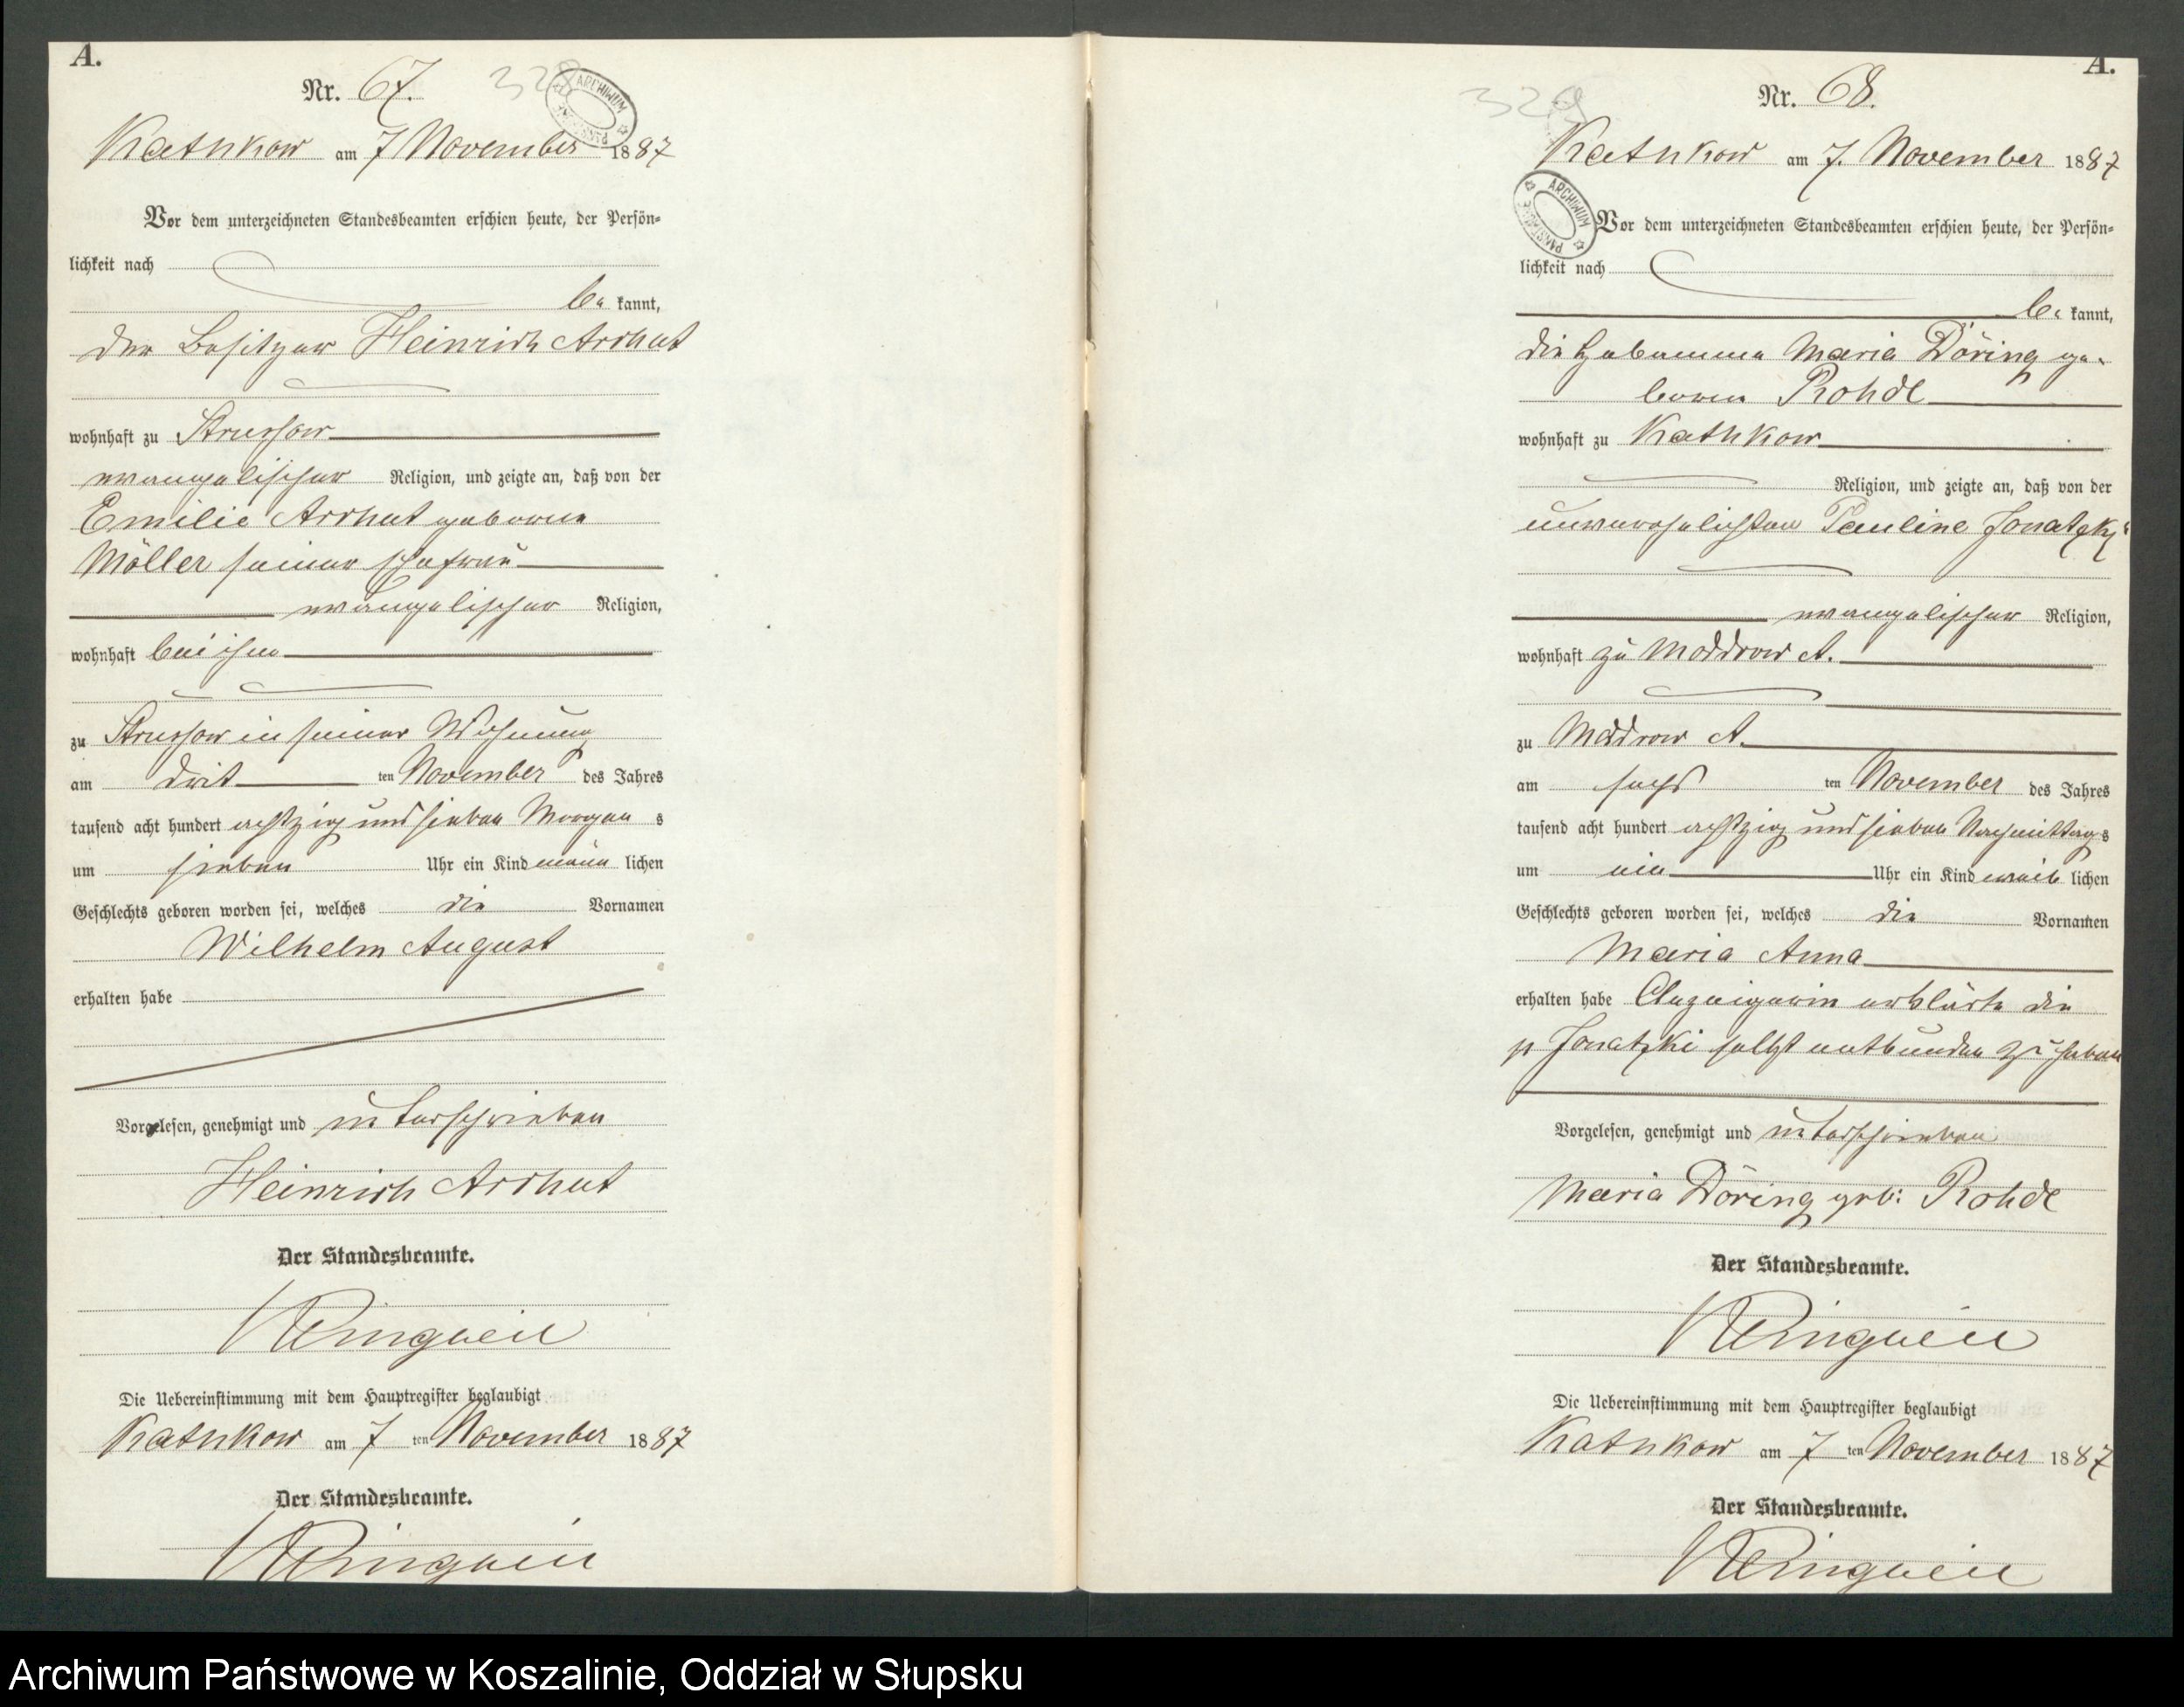 A.
Nr. 67.
328
ARCHIWUM
Kathkow am 7 November 1887
Vor dem unterzeichneten Standesbeamten erschien heute, der Persön-
lichkeit nach
be kannt,
der Besitzer Heinrich Arthut
wohnhaft zu Strussow
evangelischer Religion, und zeigte an, daß von der
Emilie Arthut geborene
Möller seiner Ehefrau
evangelischer Religion,
wohnhaft bei ihm
zu Strussow in seiner Wohnung
am drit ten November des Jahres
tausend acht hundert achtzig und sieben Morgen s
um sieben Uhr ein Kind männ lichen
Geschlechts geboren worden sei, welches die Vornamen
Wilhelm August
erhalten habe
Vorgelesen, genehmigt und unterschrieben
Heinrich Arthut
Der Standesbeamte.
Die Uebereinstimmung mit dem Hauptregister beglaubigt
Kathkow am 7 ten November 1887
Der Standesbeamte.
A.
Nr. 68.
329
Kathkow am 7. November 1887
ARCHIWUM
Vor dem unterzeichneten Standesbeamten erschien heute, der Persön-
lichkeit nach
be kannt,
die Hebamme Maria Döring ge-
borene Rohde
wohnhaft zu Kathkow
Religion, und zeigte an, daß von der
unverehelichten Pauline Jonatzki
evangelischer Religion,
wohnhaft zu Moddrow A.
zu Moddrow A.
am sechs ten November des Jahres
tausend acht hundert achtzig und sieben Nachmittag s
um ein Uhr ein Kind weib lichen
Geschlechts geboren worden sei, welches die Vornamen
Maria Anna
erhalten habe Anzeigerin erklärte die
p Jonatzki selbst entbunden zu haben
Vorgelesen, genehmigt und unterschrieben
Maria Döring geb: Rohde
Der Standesbeamte.
Die Uebereinstimmung mit dem Hauptregister beglaubigt
Kathkow am 7 ten November 1887
Der Standesbeamte.
Archiwum Państwowe w Koszalinie, Oddział w Słupsku